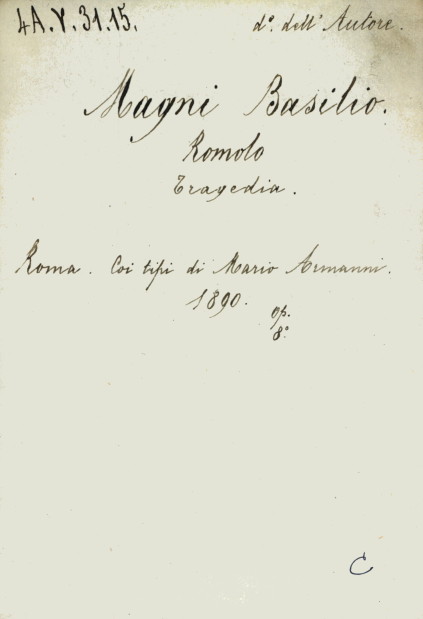 4A.V.31.15.
d°. dell' Autore.
Magni Basilio.
Romolo
Tragedia.
Roma. Coi tipi di Mario Armanni.
1890.
op.
8°
C